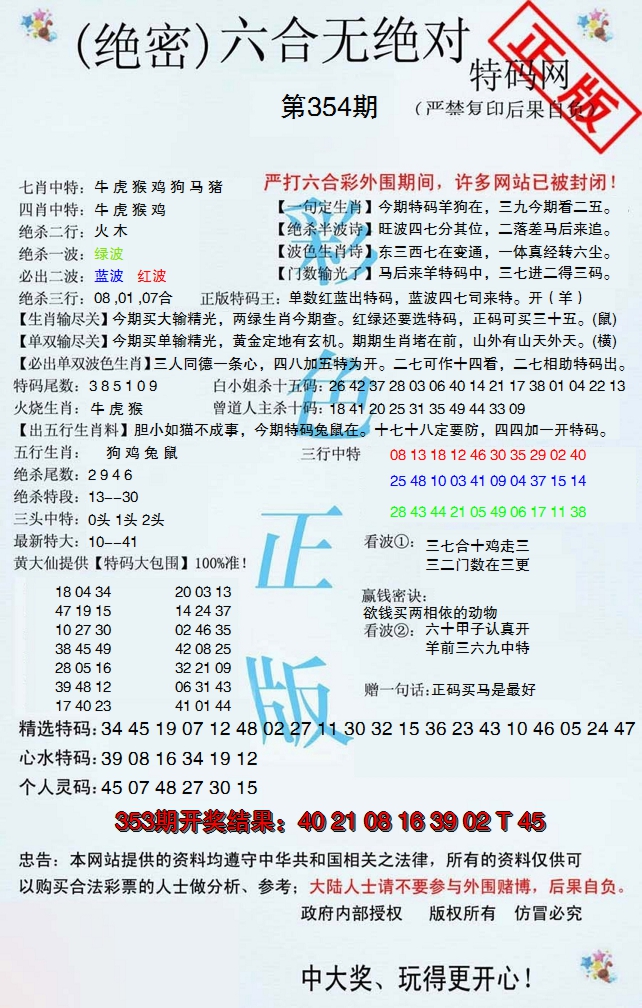 (绝密)六合无绝对
特码网
正版
第354期
(严禁复印后果自负)
七肖中特：牛虎猴鸡狗马猪
严打六合彩外围期间，许多网站已被封闭！
四肖中特：牛虎猴鸡
【一句定生肖】今期特码羊狗在，三九今期看二五。
绝杀二行：火木
【绝杀半波诗】旺波四七分其位，二落差马后来追。
绝杀一波：绿波
【波色生肖诗】东三西七在变通，一体真经转六尘。
必出二波：蓝波 红波
【门数输光了】马后来羊特码中，三七进二得三码。
绝杀三行：08 ,01 ,07合
正版特码王：单数红蓝出特码，蓝波四七司来特。开（羊）
【生肖输尽关】今期买大输精光，两绿生肖今期查。红绿还要选特码，正码可买三十五。(鼠)
【单双输尽关】今期买单输精光，黄金定地有玄机。期期生肖堵在前，山外有山天外天。(横)
【必出单双波色生肖】三人同德一条心，四八加五特为开。二七可作十四看，二七相助特码出。
特码尾数：3 8 5 1 0 9
白小姐杀十五码：26 42 37 28 03 06 40 14 21 17 38 01 04 22 13
火烧生肖：牛虎猴
曾道人主杀十码：18 41 20 25 31 35 49 44 33 09
【出五行生肖料】胆小如猫不成事，今期特码兔鼠在。十七十八定要防，四四加一开特码。
五行生肖：狗鸡兔鼠
三行中特
08 13 18 12 46 30 35 29 02 40
绝杀尾数：2 9 4 6
25 48 10 03 41 09 04 37 15 14
绝杀特段：13--30
三头中特：0头 1头 2头
28 43 44 21 05 49 06 17 11 38
最新特大：10--41
看波①：三七合十鸡走三
三二门数在三更
黄大仙提供【特码大包围】100%准！
18 04 34 20 03 13
47 19 15 14 24 37
10 27 30 02 46 35
38 45 49 42 08 25
28 05 16 32 21 09
39 48 12 06 31 43
17 40 23 41 01 44
赢钱密诀：
欲钱买两相依的动物
看波②：六十甲子认真开
羊前三六九中特
赠一句话:正码买马是最好
彩色正版
精选特码：34 45 19 07 12 48 02 27 11 30 32 15 36 23 43 10 46 05 24 47
心水特码：39 08 16 34 19 12
个人灵码：45 07 48 27 30 15
353期开奖结果：40 21 08 16 39 02 T 45
忠告：本网站提供的资料均遵守中华共和国相关之法律，所有的资料仅供可
以购买合法彩票的人士做分析、参考；大陆人士请不要参与外围赌博，后果自负。
政府内部授权 版权所有 仿冒必究
中大奖、玩得更开心！